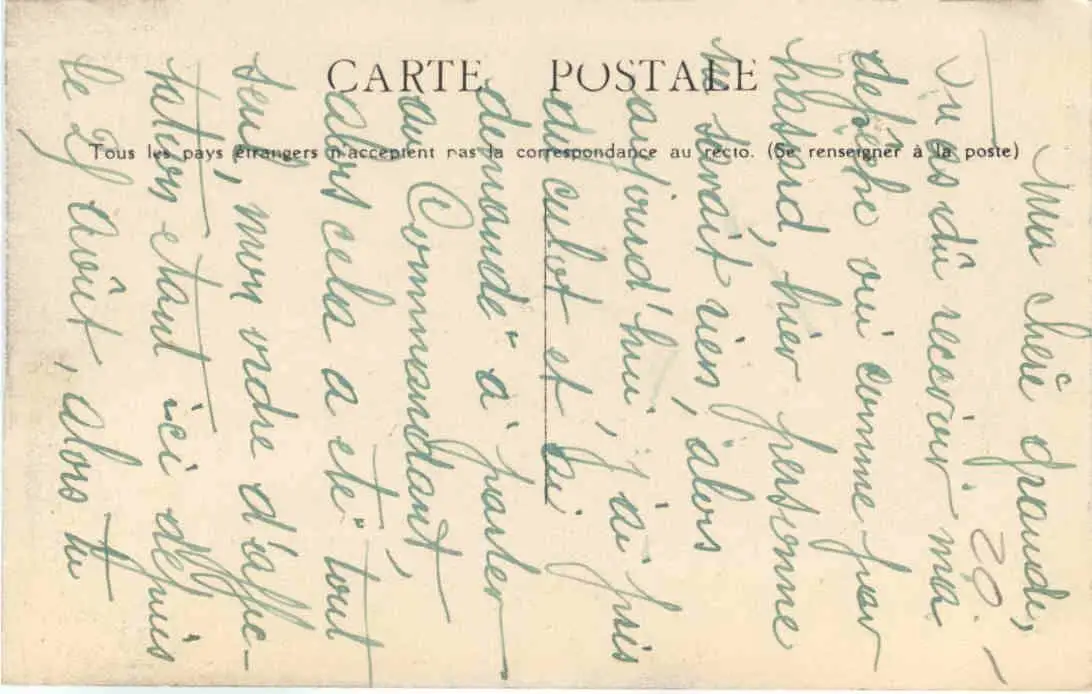 CARTE POSTALE
Tous les pays étrangers n'acceptent pas la correspondance au recto. (Se renseigner à la poste)
20.-
Ma chère grande,
Tu as dû recevoir ma
dépêche oui comme par
hasard, hier personne
ne savait rien, alors
aujourd'hui j'ai pris
du culot et j'ai
demandé à parler
au Commandant,
alors cela a été tout
seul, mon ordre d'affec-
tation étant ici depuis
le août, alors tu